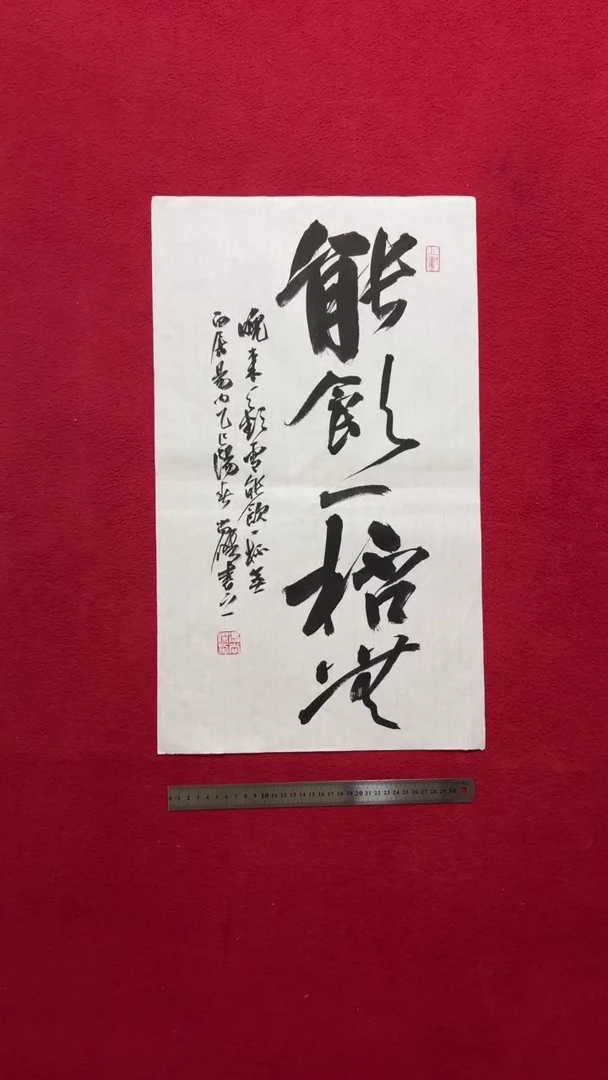 能飲一桮無
晚来天欲雪能飲一杯無
白居易句乙巳陽春書
1 2 3 4 5 6 7 8 9 10 11 12 13 14 15 16 17 18 19 20 21 22 23 24 25 26 27 28 29 30